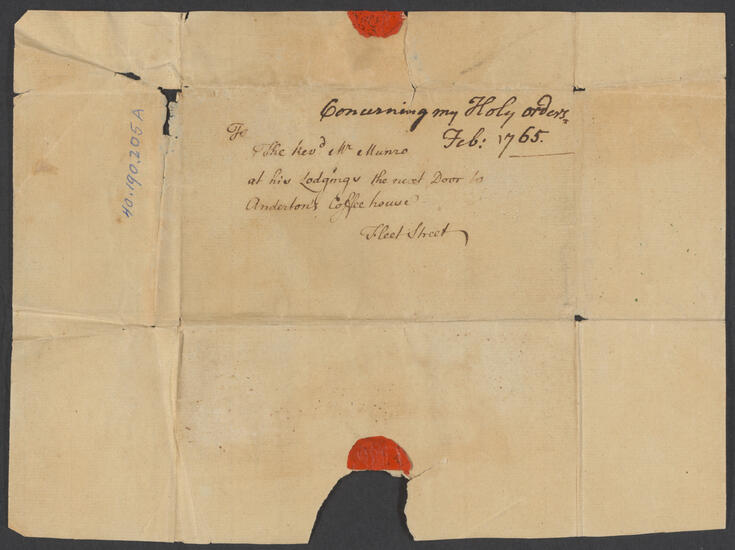 Concerning my Holy orders
Feb: 1765.
To
The Rev.d Mr. Munro
at his Lodgings the next Door to
Anderton's Coffee house
Fleet Street
40.190.205A